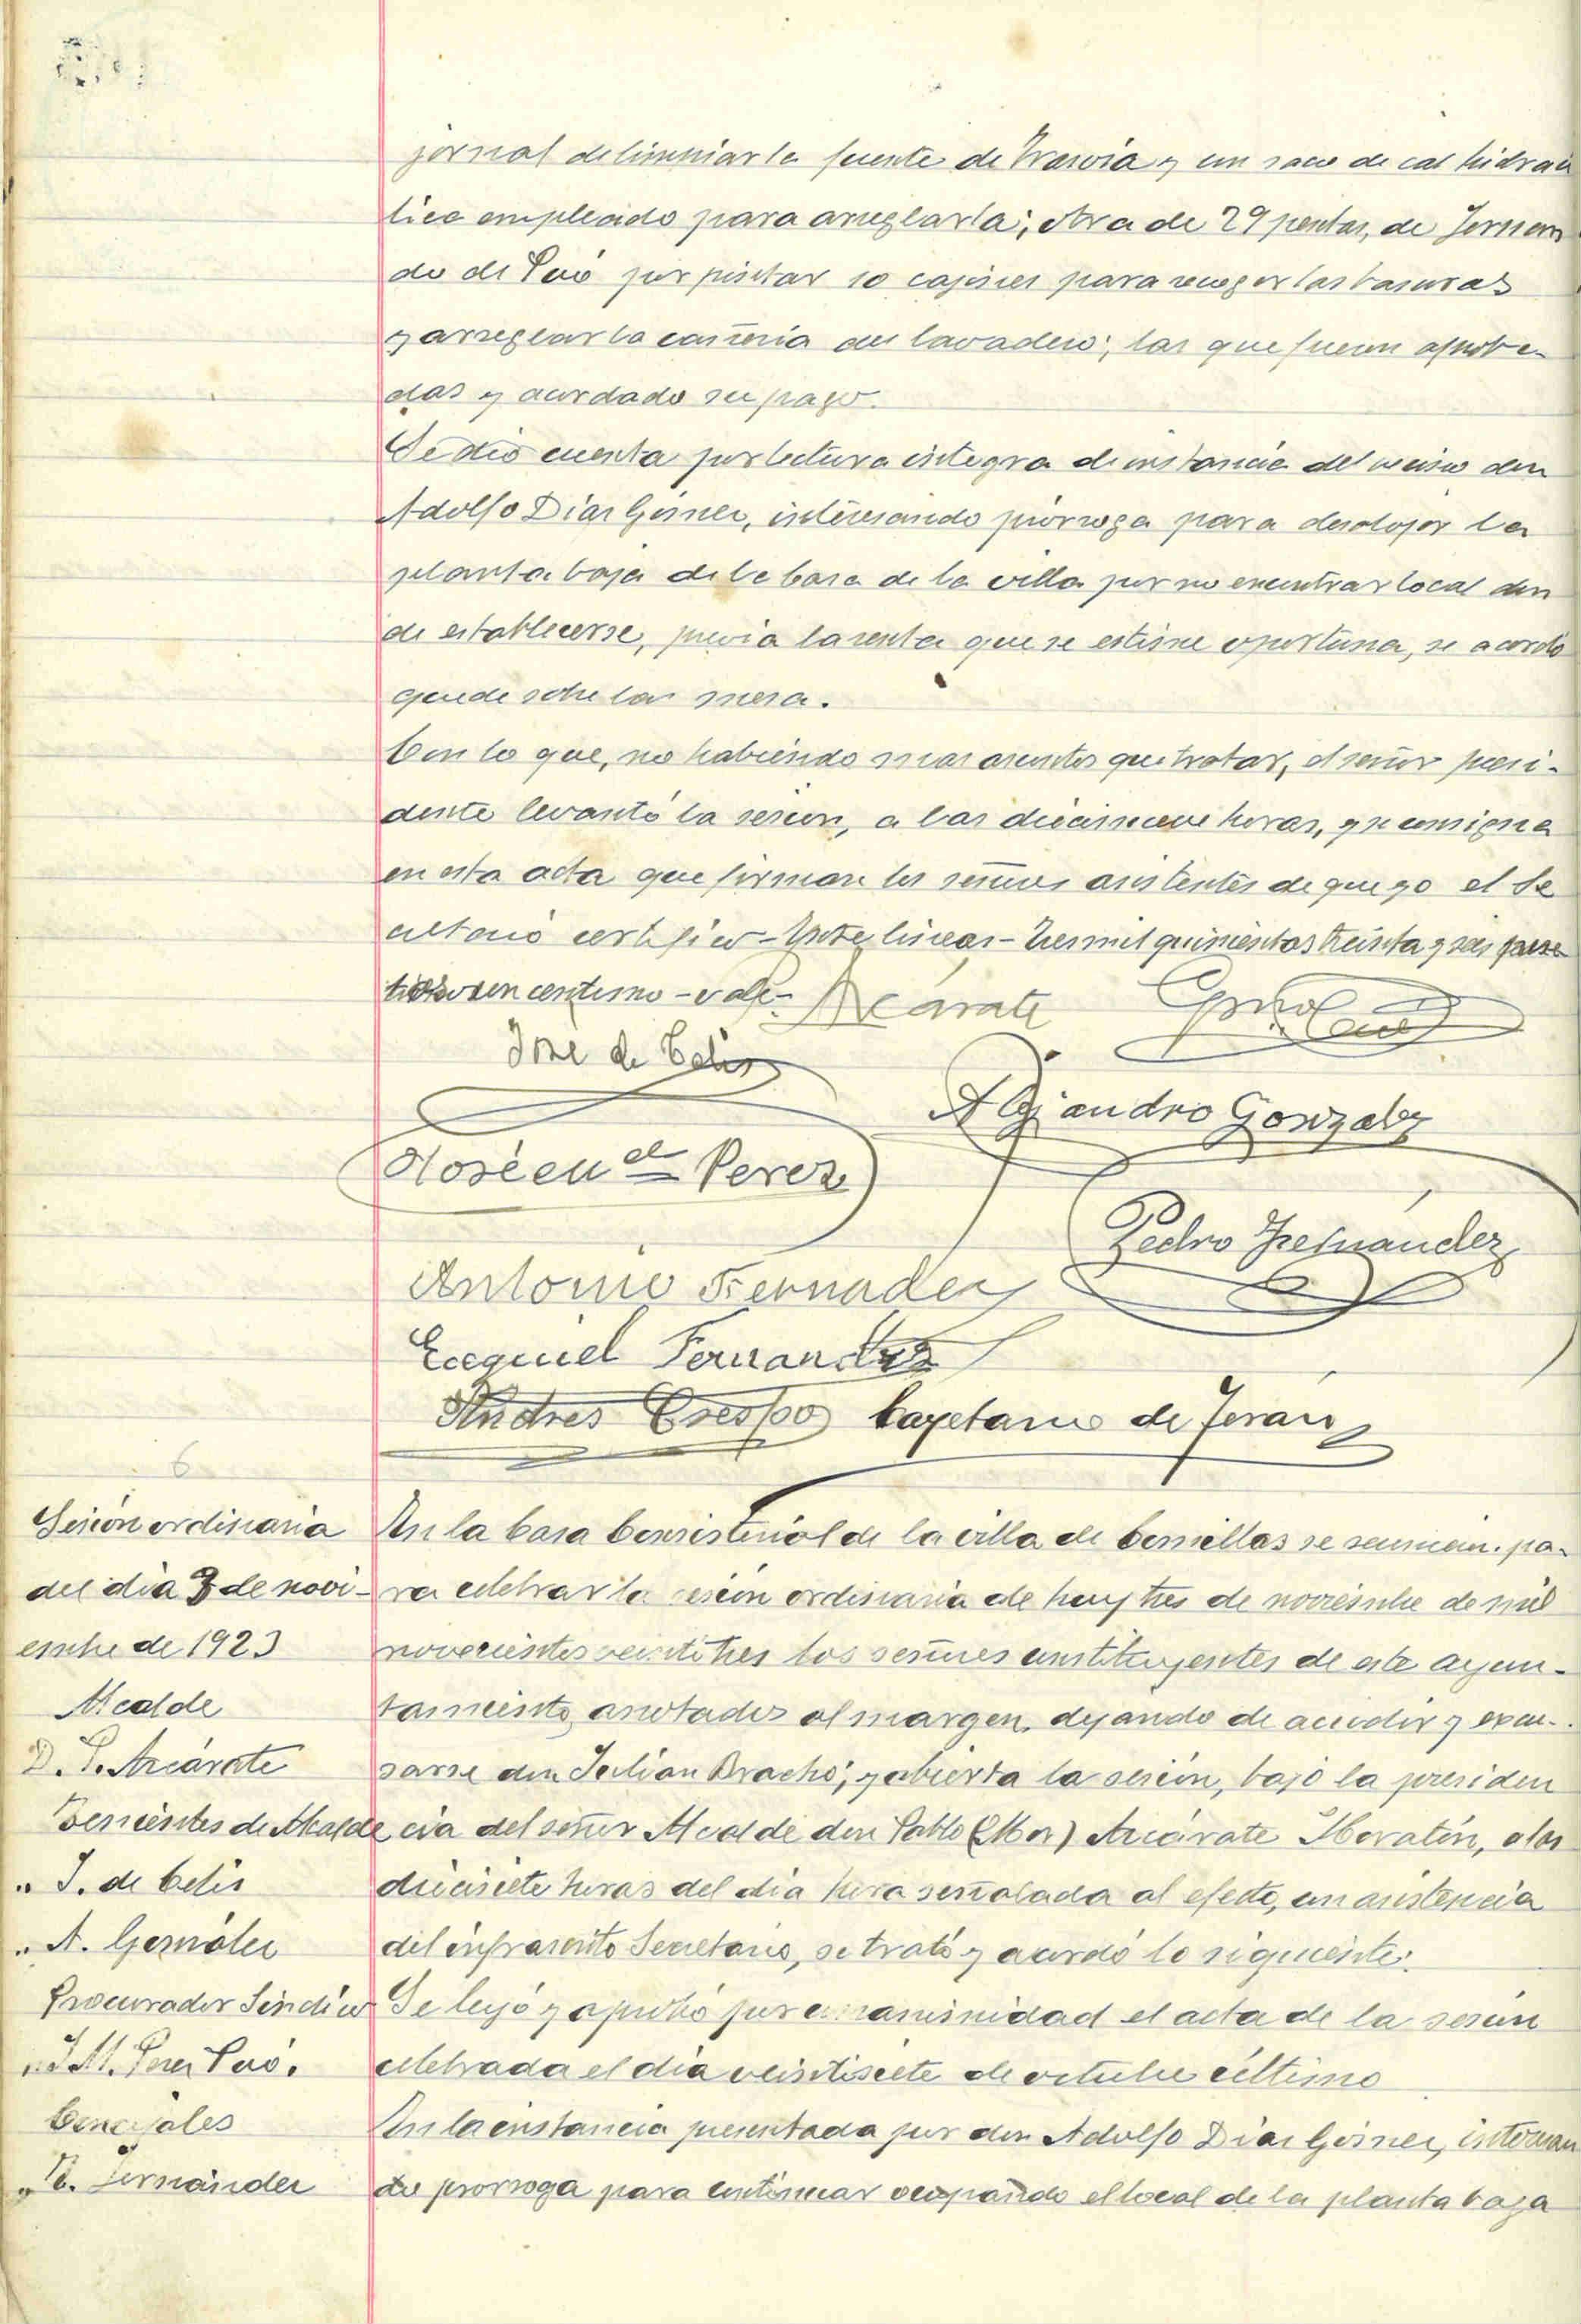 jornal de limpiar la fuente de Trasvía y un saco de cal hidráu
lica empleado para arreglarla; otra de 29 pesetas, de Fernan
do de Poó por pintar 10 cajones para recoger las basuras
y arreglar la cañería del lavadero; las que fueron aproba-
das y acordado su pago.
Se dió cuenta por lectura íntegra de instancia del vecino don
Adolfo Díaz Gómez, interesando prórroga para desalojar la
planta baja de la Casa de la villa por no encontrar local don
de establecerse, previa la renta que se estime oportuna, se acordó
quede sobre la mesa.
Con lo que, no habiendo mas asuntos que tratar, el señor presi-
dente levantó la sesión, a las diecinueve horas, y se consigna
en esta acta que firman los señores asistentes de que yo el Se
cretario certifico - Entre lineas - tres mil quinientas treinta y seis pese
tas un centimo - vale -
Arcárate
José de Celis
Alejandro Gonzalez
José Perez
Pedro Fernández
Antonio Fernadez
Ecequiel Fernandez
Andres Crespo Cayetano de Terán
6
Sesión ordinaria
del día 3 de novi-
embre de 1923
Alcalde
D. P. Arcárate
Tenientes de Alcalde
" J. de Celis
" A. González
Procurador Síndico
" J. M. Perez Poó.
Concejales
" P. Fernández
En la Casa Consistorial de la villa de Comillas se reunieron pa-
ra celebrar la sesión ordinaria de hoy tres de noviembre de mil
novecientos veintitres los señores constituyentes de este ayun-
tamiento anotados al margen, dejando de acudir y excu-
sarse don Julian Bracho; y abierta la sesión, bajo la presiden
cia del señor Alcalde don Pablo (Mor) Arcárate Moratín, a las
diecisiete horas del día hora señalada al efecto, con asistencia
del infrascrito Secretario, se trató y acordó lo siguiente:
Se leyó y aprobó por unanimidad el acta de la sesión
celebrada el día veintisiete de octubre último
En la instancia presentada por don Adolfo Díaz Gómez, interesan
do prorroga para continuar ocupando el local de la planta baja